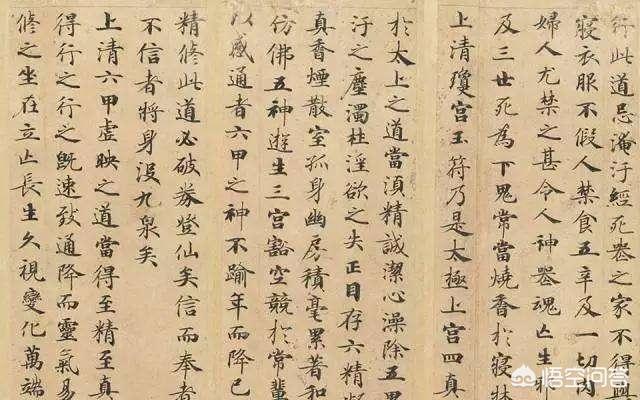 行此道忌淹汙經死喪之家不得與
寢衣服不假人禁食五辛及一切肉
婦人尤禁之甚令人神喪魂亡生邪
及三世死為下鬼常當燒香於寢牀
上清瓊宮玉符乃是太極上宮四真
於太上之道當須精誠潔心澡除五累
汙之塵濁杜淫欲之失正目存六精凝
真香煙散室孤身幽房積毫累著和
仿佛五神遊生三宮豁空競於常輩
以感通者六甲之神不踰年而降己
精修此道必破券登仙矣信而奉者
不信者將身沒九泉矣
上清六甲虛映之道當得至精至真
得行之行之既速致通降而靈氣易
修之坐在立亡長生久視變化萬端
悟空问答